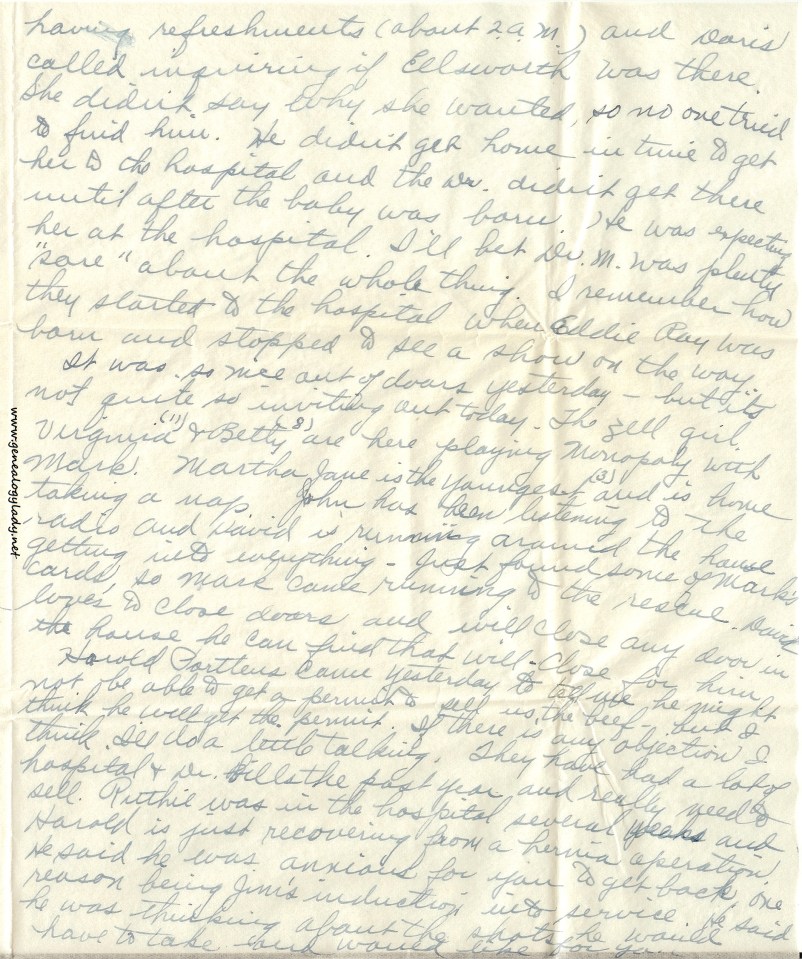 having refreshments (about 2 a.m.) and Doris
called inquiring if Ellsworth was there.
She didn't say why she wanted, so no one tried
to find him. He didn't get home in time to get
her to the hospital and the Dr. didn't get there
until after the baby was born. He was expecting
her at the hospital. I'll bet Dr. M. was plenty
"sore" about the whole thing. I remember how
they started to the hospital when Eddie Ray was
born and stopped to see a show on the way.
It was so nice out of doors yesterday - but its
not quite so inviting out today. The Zell girl
Virginia (11) & Betty (8) are here playing Monopoly with
Mark. Martha Jane is the youngest (3) and is home
taking a nap. John has been listening to the
radio and David is running around the house
getting into everything - Just found some of Mark's
cards, so Mark came running to the rescue. David
loves to close doors and will close any door in
the house he can find that will close for him.
Harold Porttens came yesterday to tell me he might
not be able to get a permit to sell us the beef - but I
think he will get the permit. If there is any objection I
think I'll do a little talking. They have had a lot of
hospital & Dr. Bills the past year and really need to
sell. Ruthie was in the hospital several weeks and
Harold is just recovering from a hernia operation.
He said he was anxious for you to get back, one
reason being Jim's induction into service. He said
he was thinking about the shots he would
have to take and would like for you
www.genealogylady.net